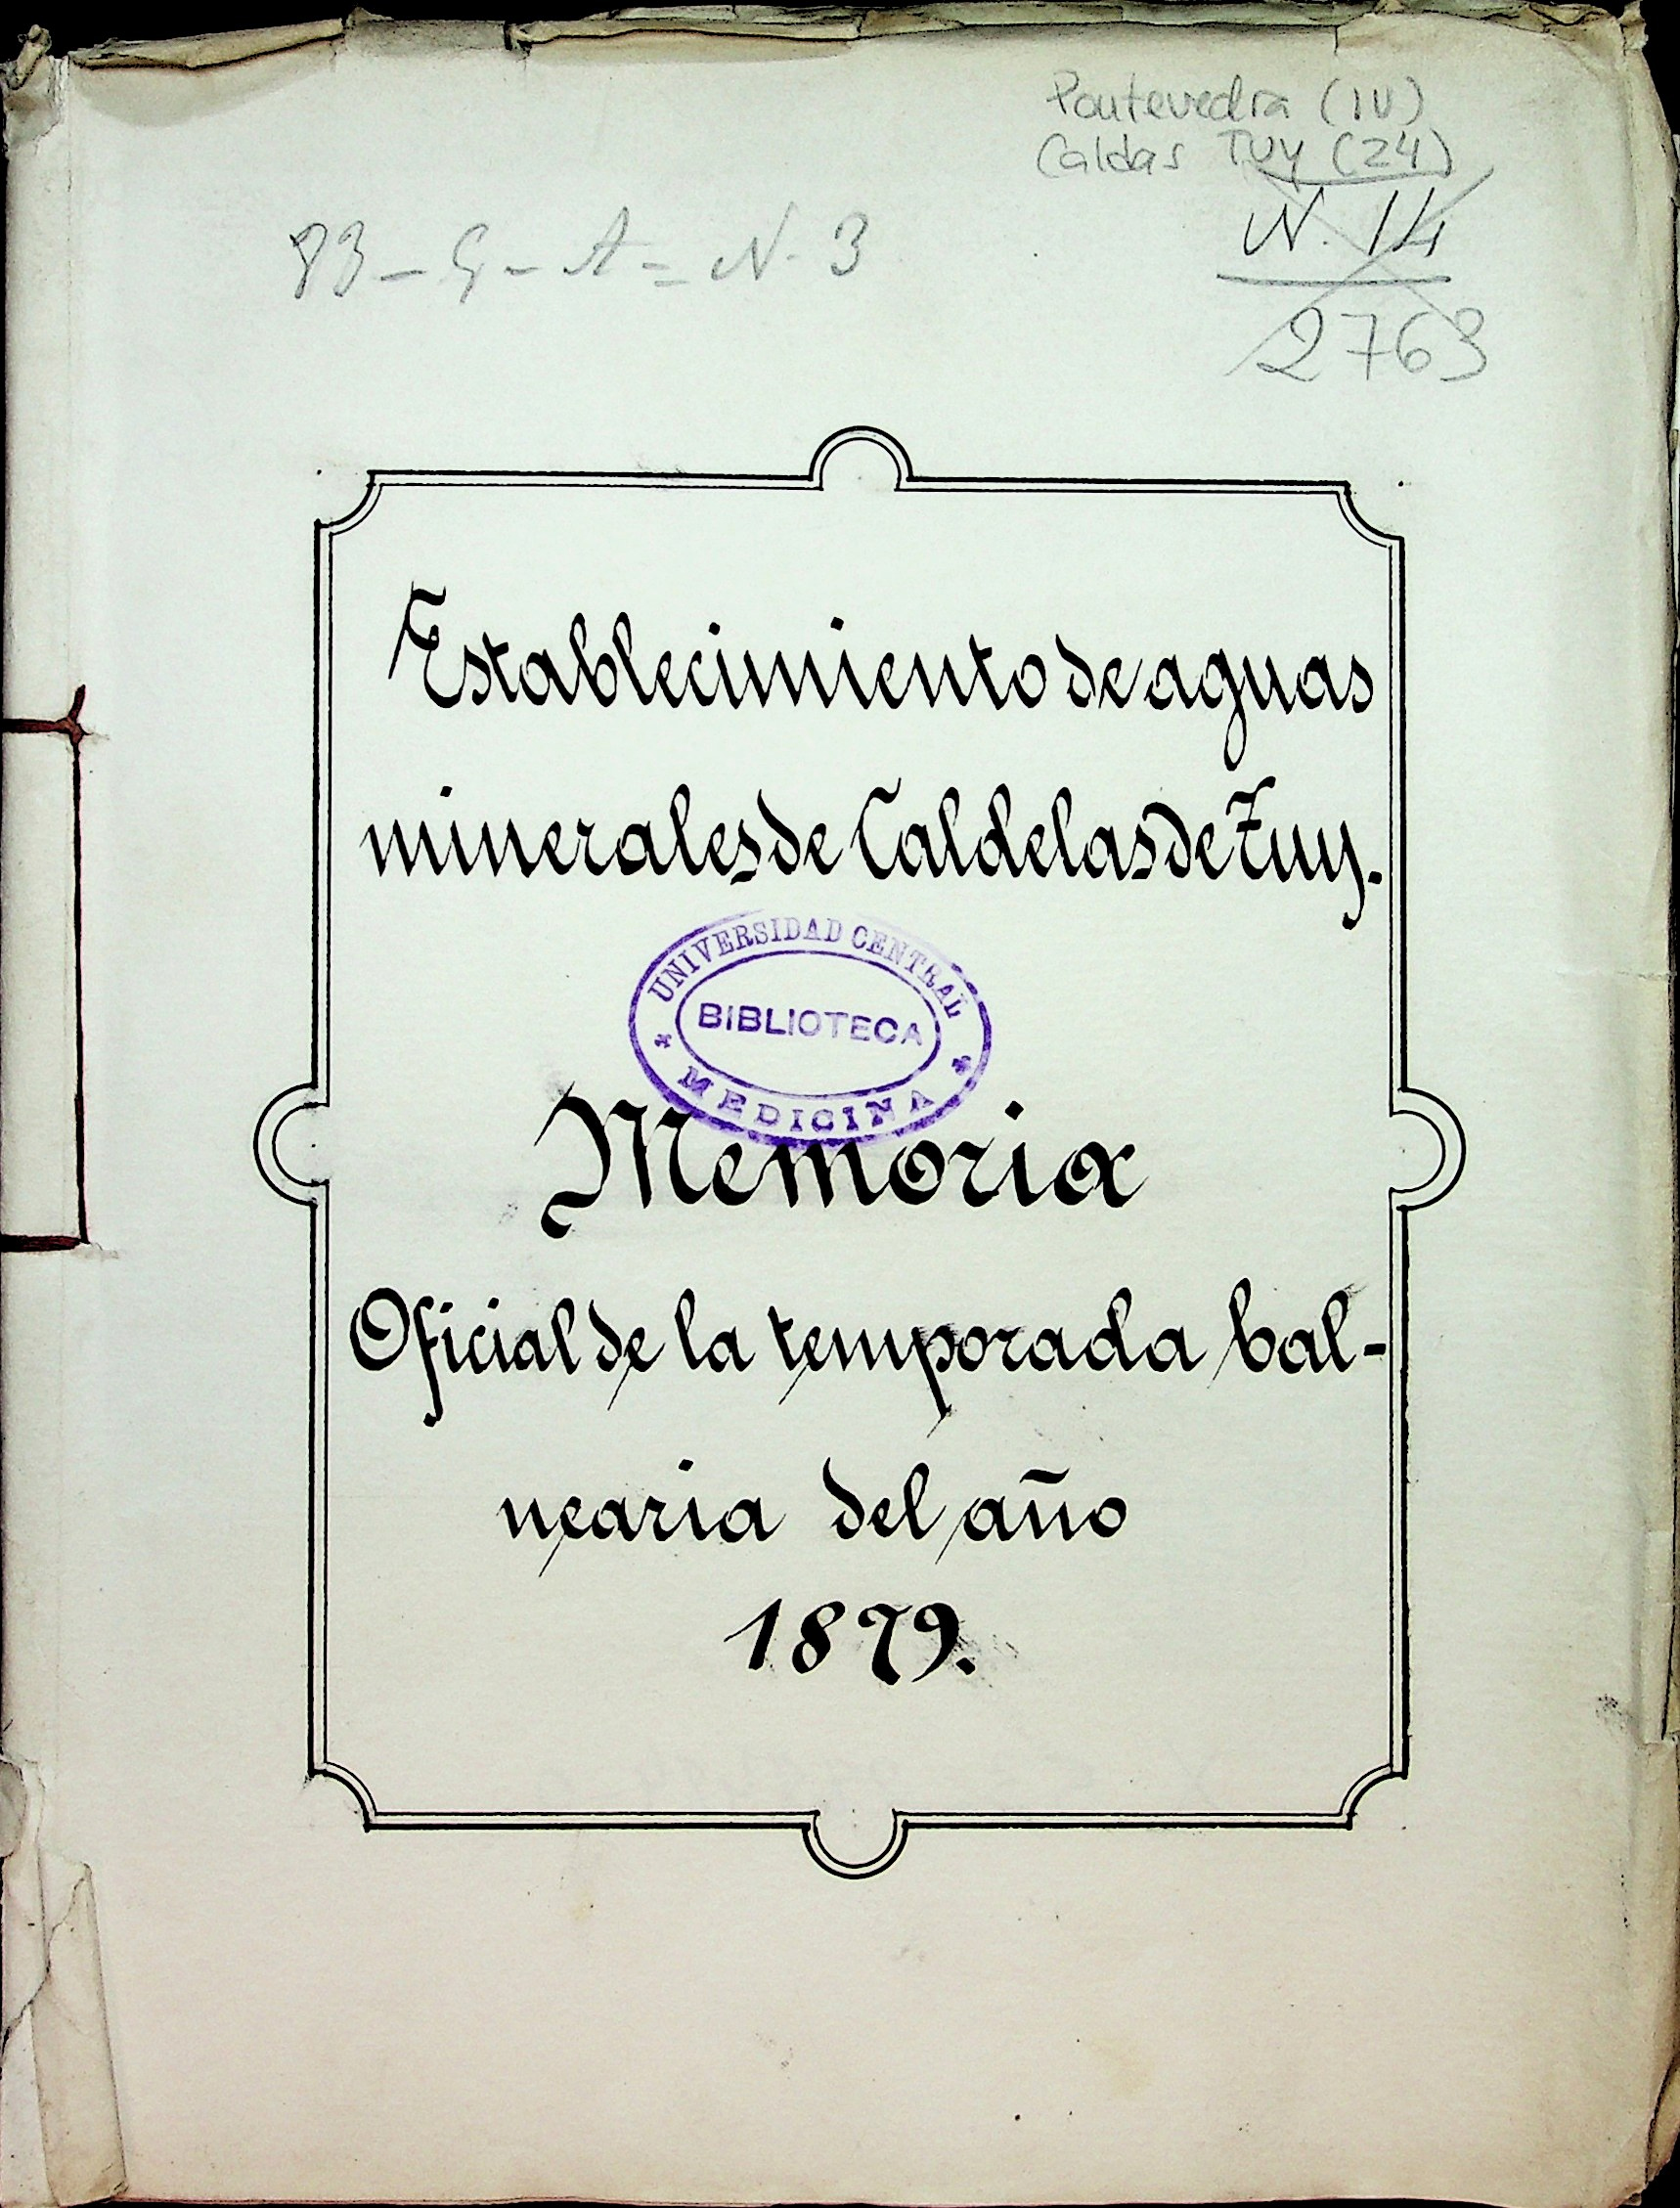 Pontevedra (IV)
Caldas TUY (24)
N. 14
2763
83 - G - A = N. 3
Establecimiento de aguas
minerales de Caldelas de Tuy.
UNIVERSIDAD CENTRAL
BIBLIOTECA
MEDICINA
Memoria
Oficial de la temporada bal-
nearia del año
1879.